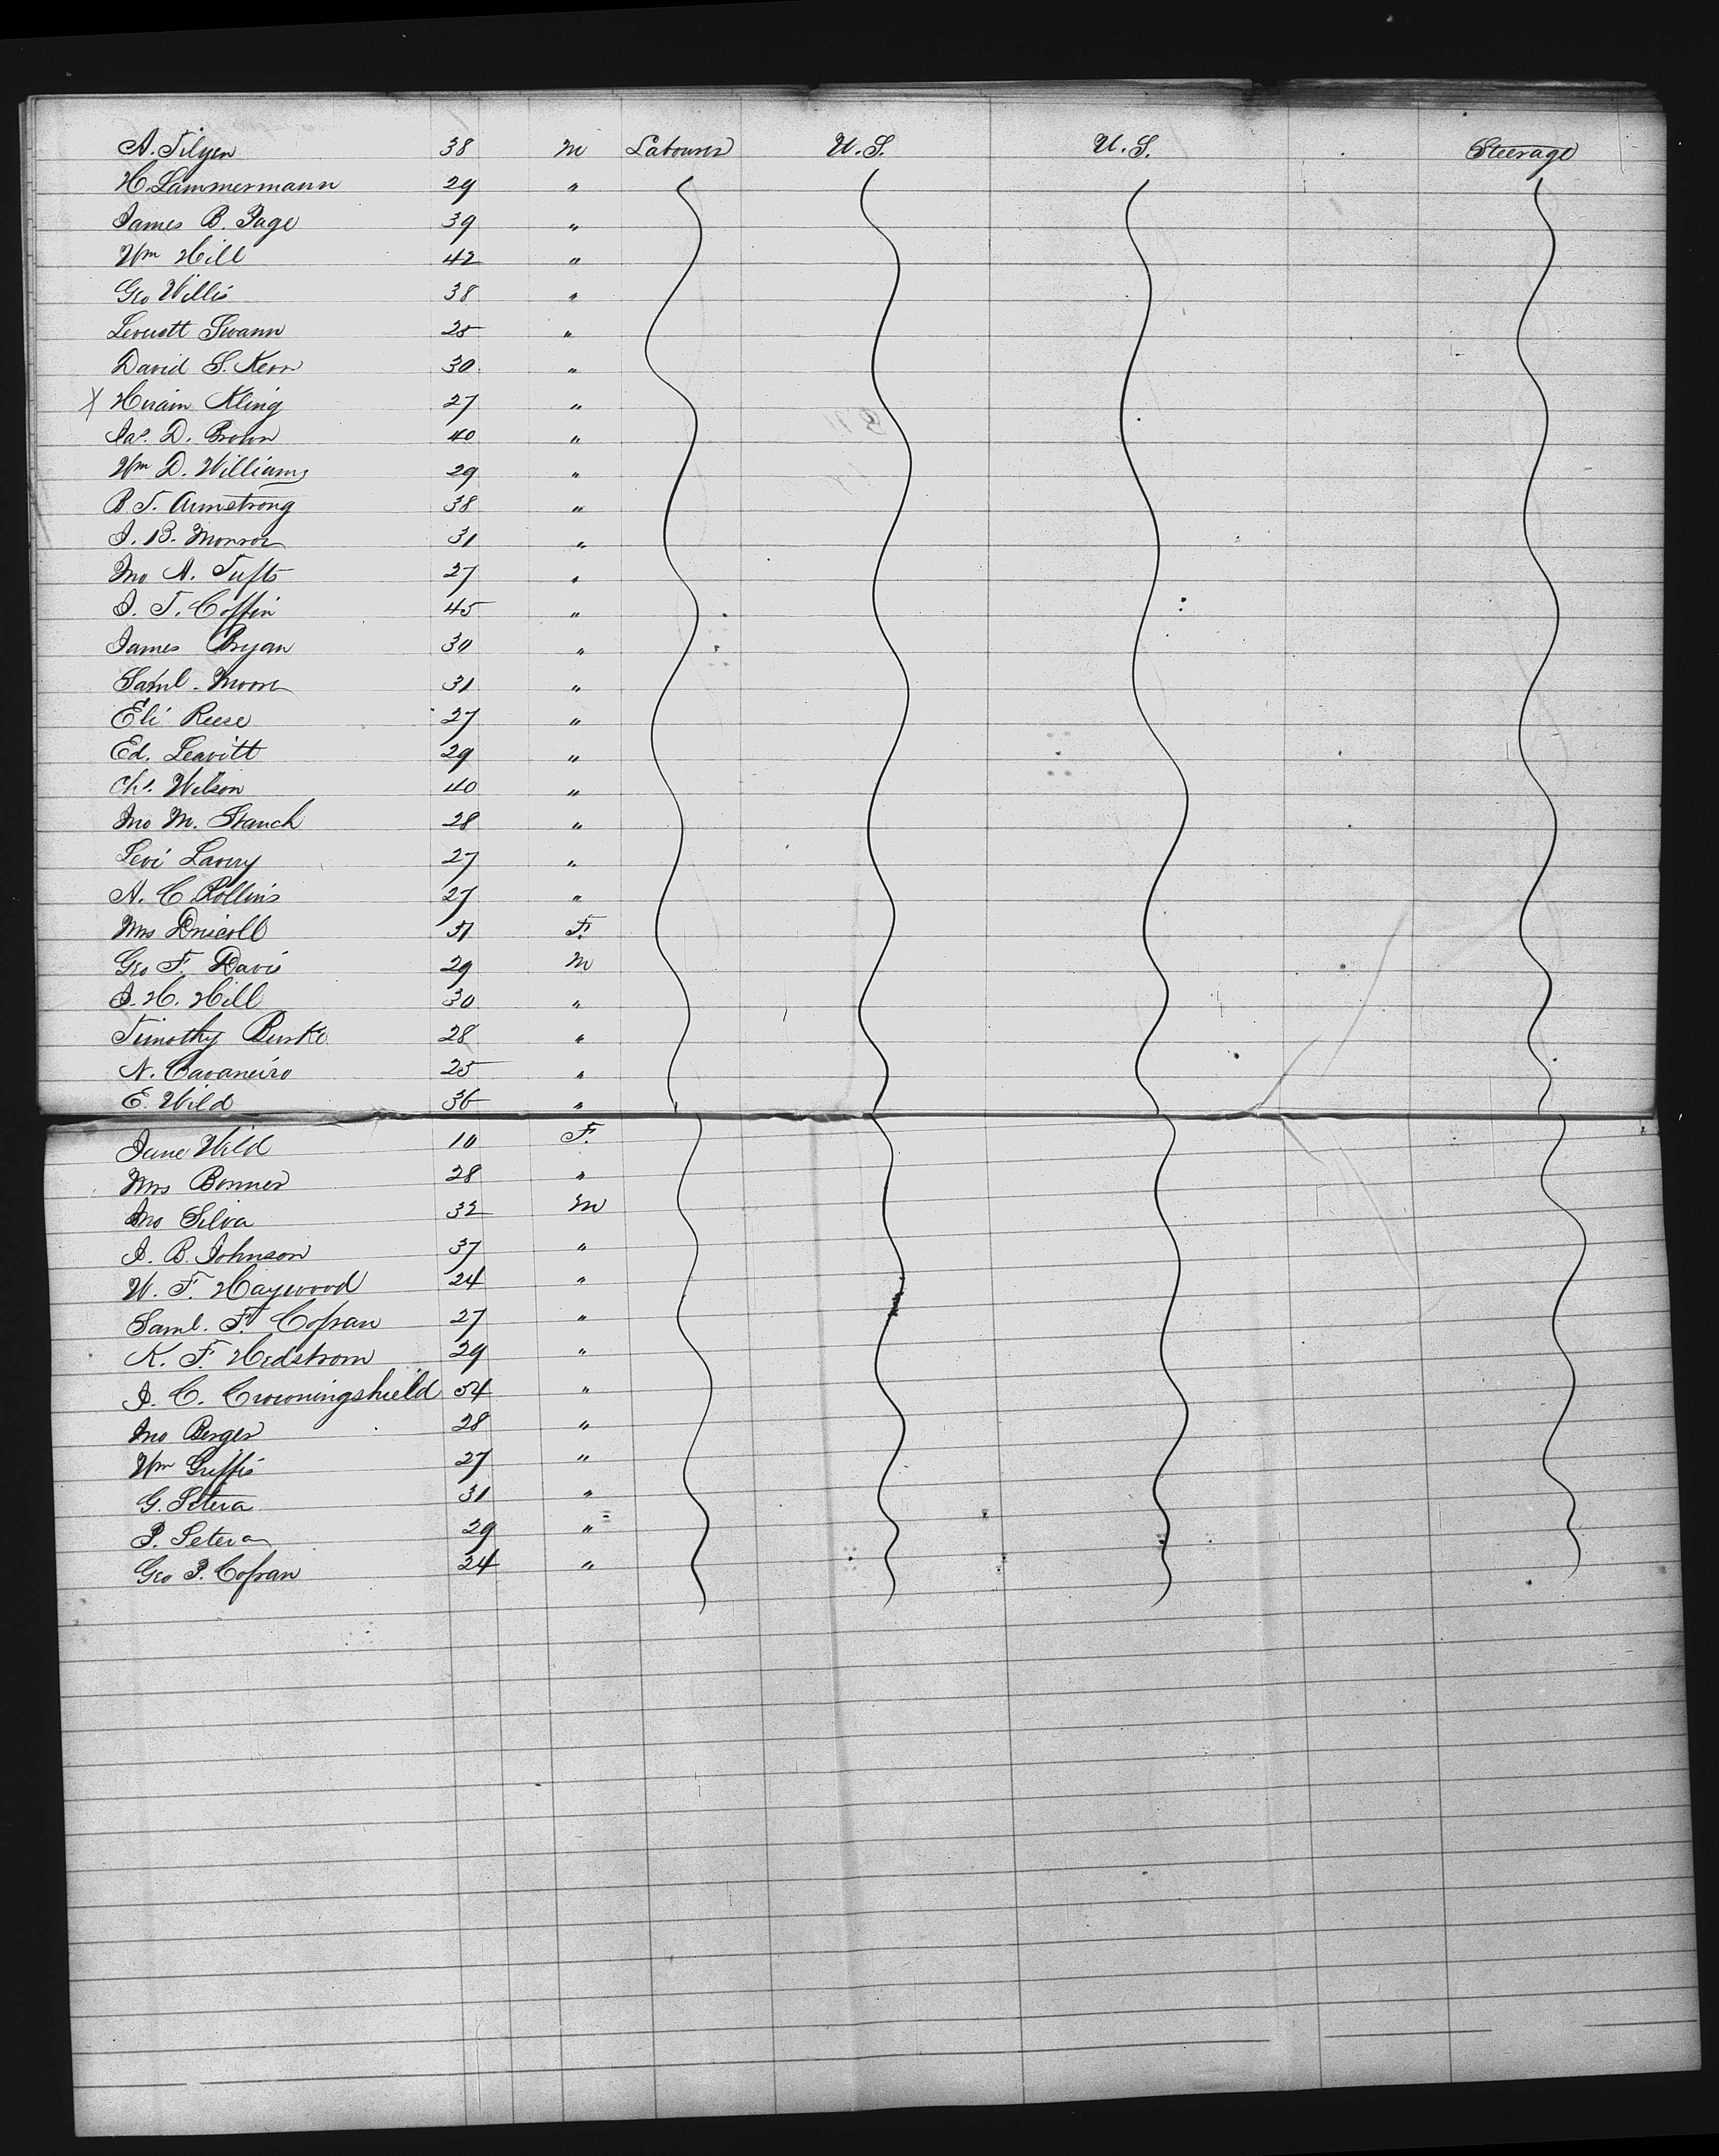 A. Tilyen 38 M Labourer U.S. U.S. Steerage
H. Lammermann 29 "
James B. Page 39 "
Wm Hill 42 "
Geo Willis 38 "
Leverett Swann 25 "
David S. Kerr 30 "
X Hiram Kling 27 "
Jas. D. Brown 40 "
Wm D. Williams 29 "
B. T. Armstrong 38 "
J. B. Monroe 31 "
Jno A. Tufts 27 "
J. T. Coffin 45 "
James Bryan 30 "
Saml. Moore 31 "
Eli Reese 27 "
Ed. Leavitt 29 "
Chs. Wilson 40 "
Jno M. Stanch 28 "
Levi Lavery 27 "
A. C Rollins 27 "
Mrs Driscoll 31 F.
Geo F. Davis 29 M
J. H. Hill 30 "
Timothy Burke 28 "
N. Cavaneiro 25 "
E. Wild 36 "
Jane Wild 10 F.
Mrs Bonner 28 "
Jno Silva 32 M
J. B. Johnson 37 "
W. F. Haywood 24 "
Saml. F. Cofran 27 "
K. F. Hedstrom 29 "
J. C. Crowningshield 54 "
Jno Berger 28 "
Wm Griffis 27 "
G. Petera 31 "
P. Petera 29 "
Geo P. Cofran 24 "